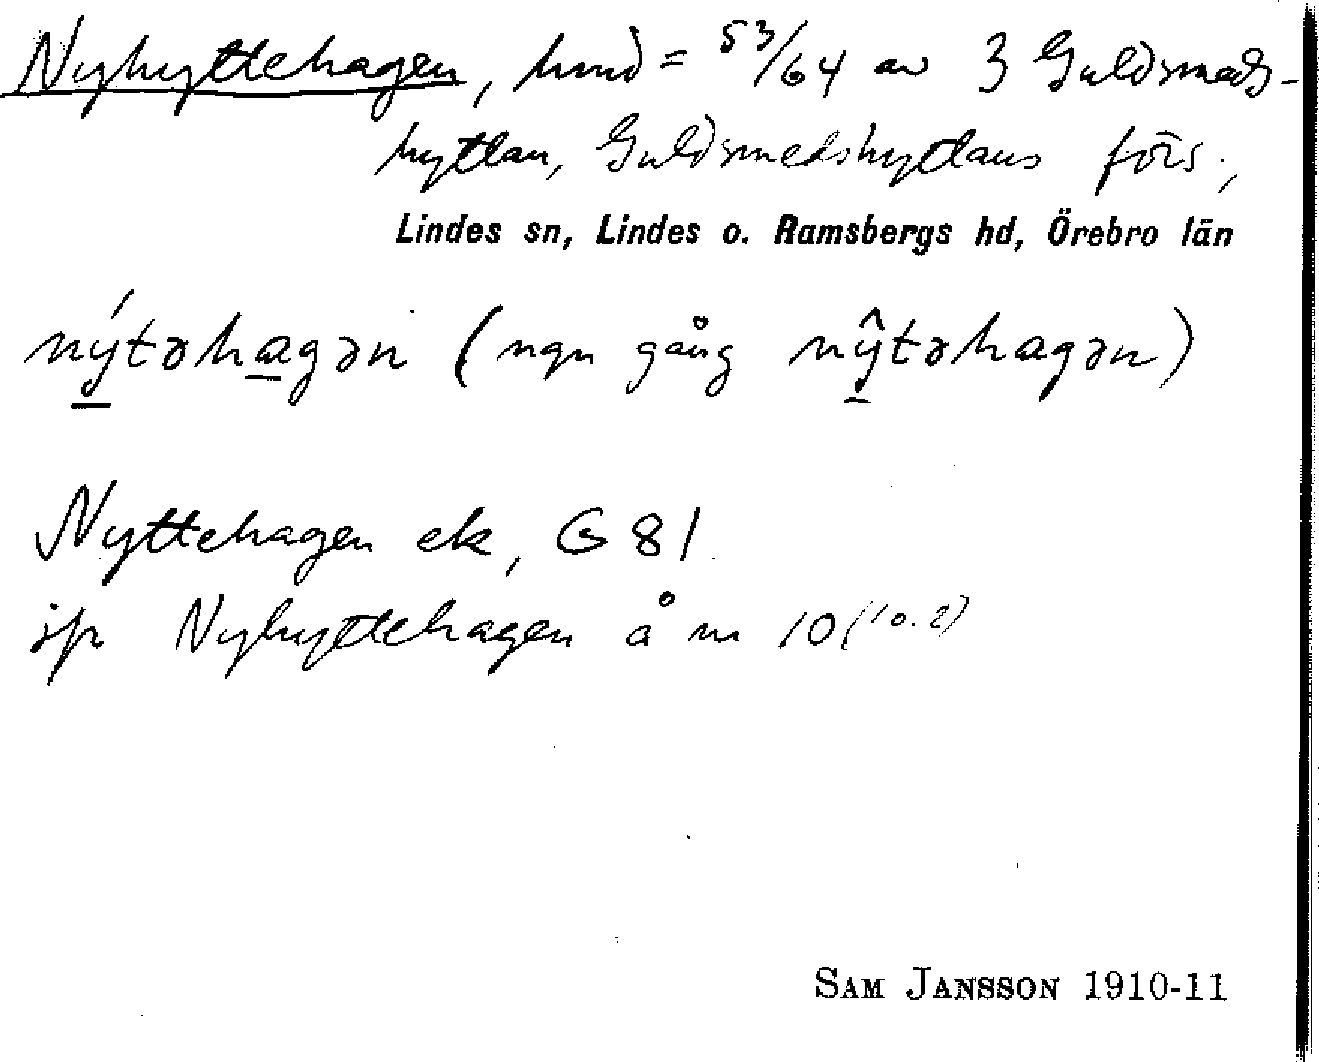 Nyhyttehagen, hmd = 53/64 av 3 Guldsmeds-
hyttan, Guldsmedshyttans förs.,
Lindes sn, Lindes o. Ramsbergs hd, Örebro län
nýtəhagən (ngn gång nŷtəhagən)
Nyttehagen ek, G 81
jfr Nyhyttehagen å m 10 (10.2)
SAM JANSSON 1910-11